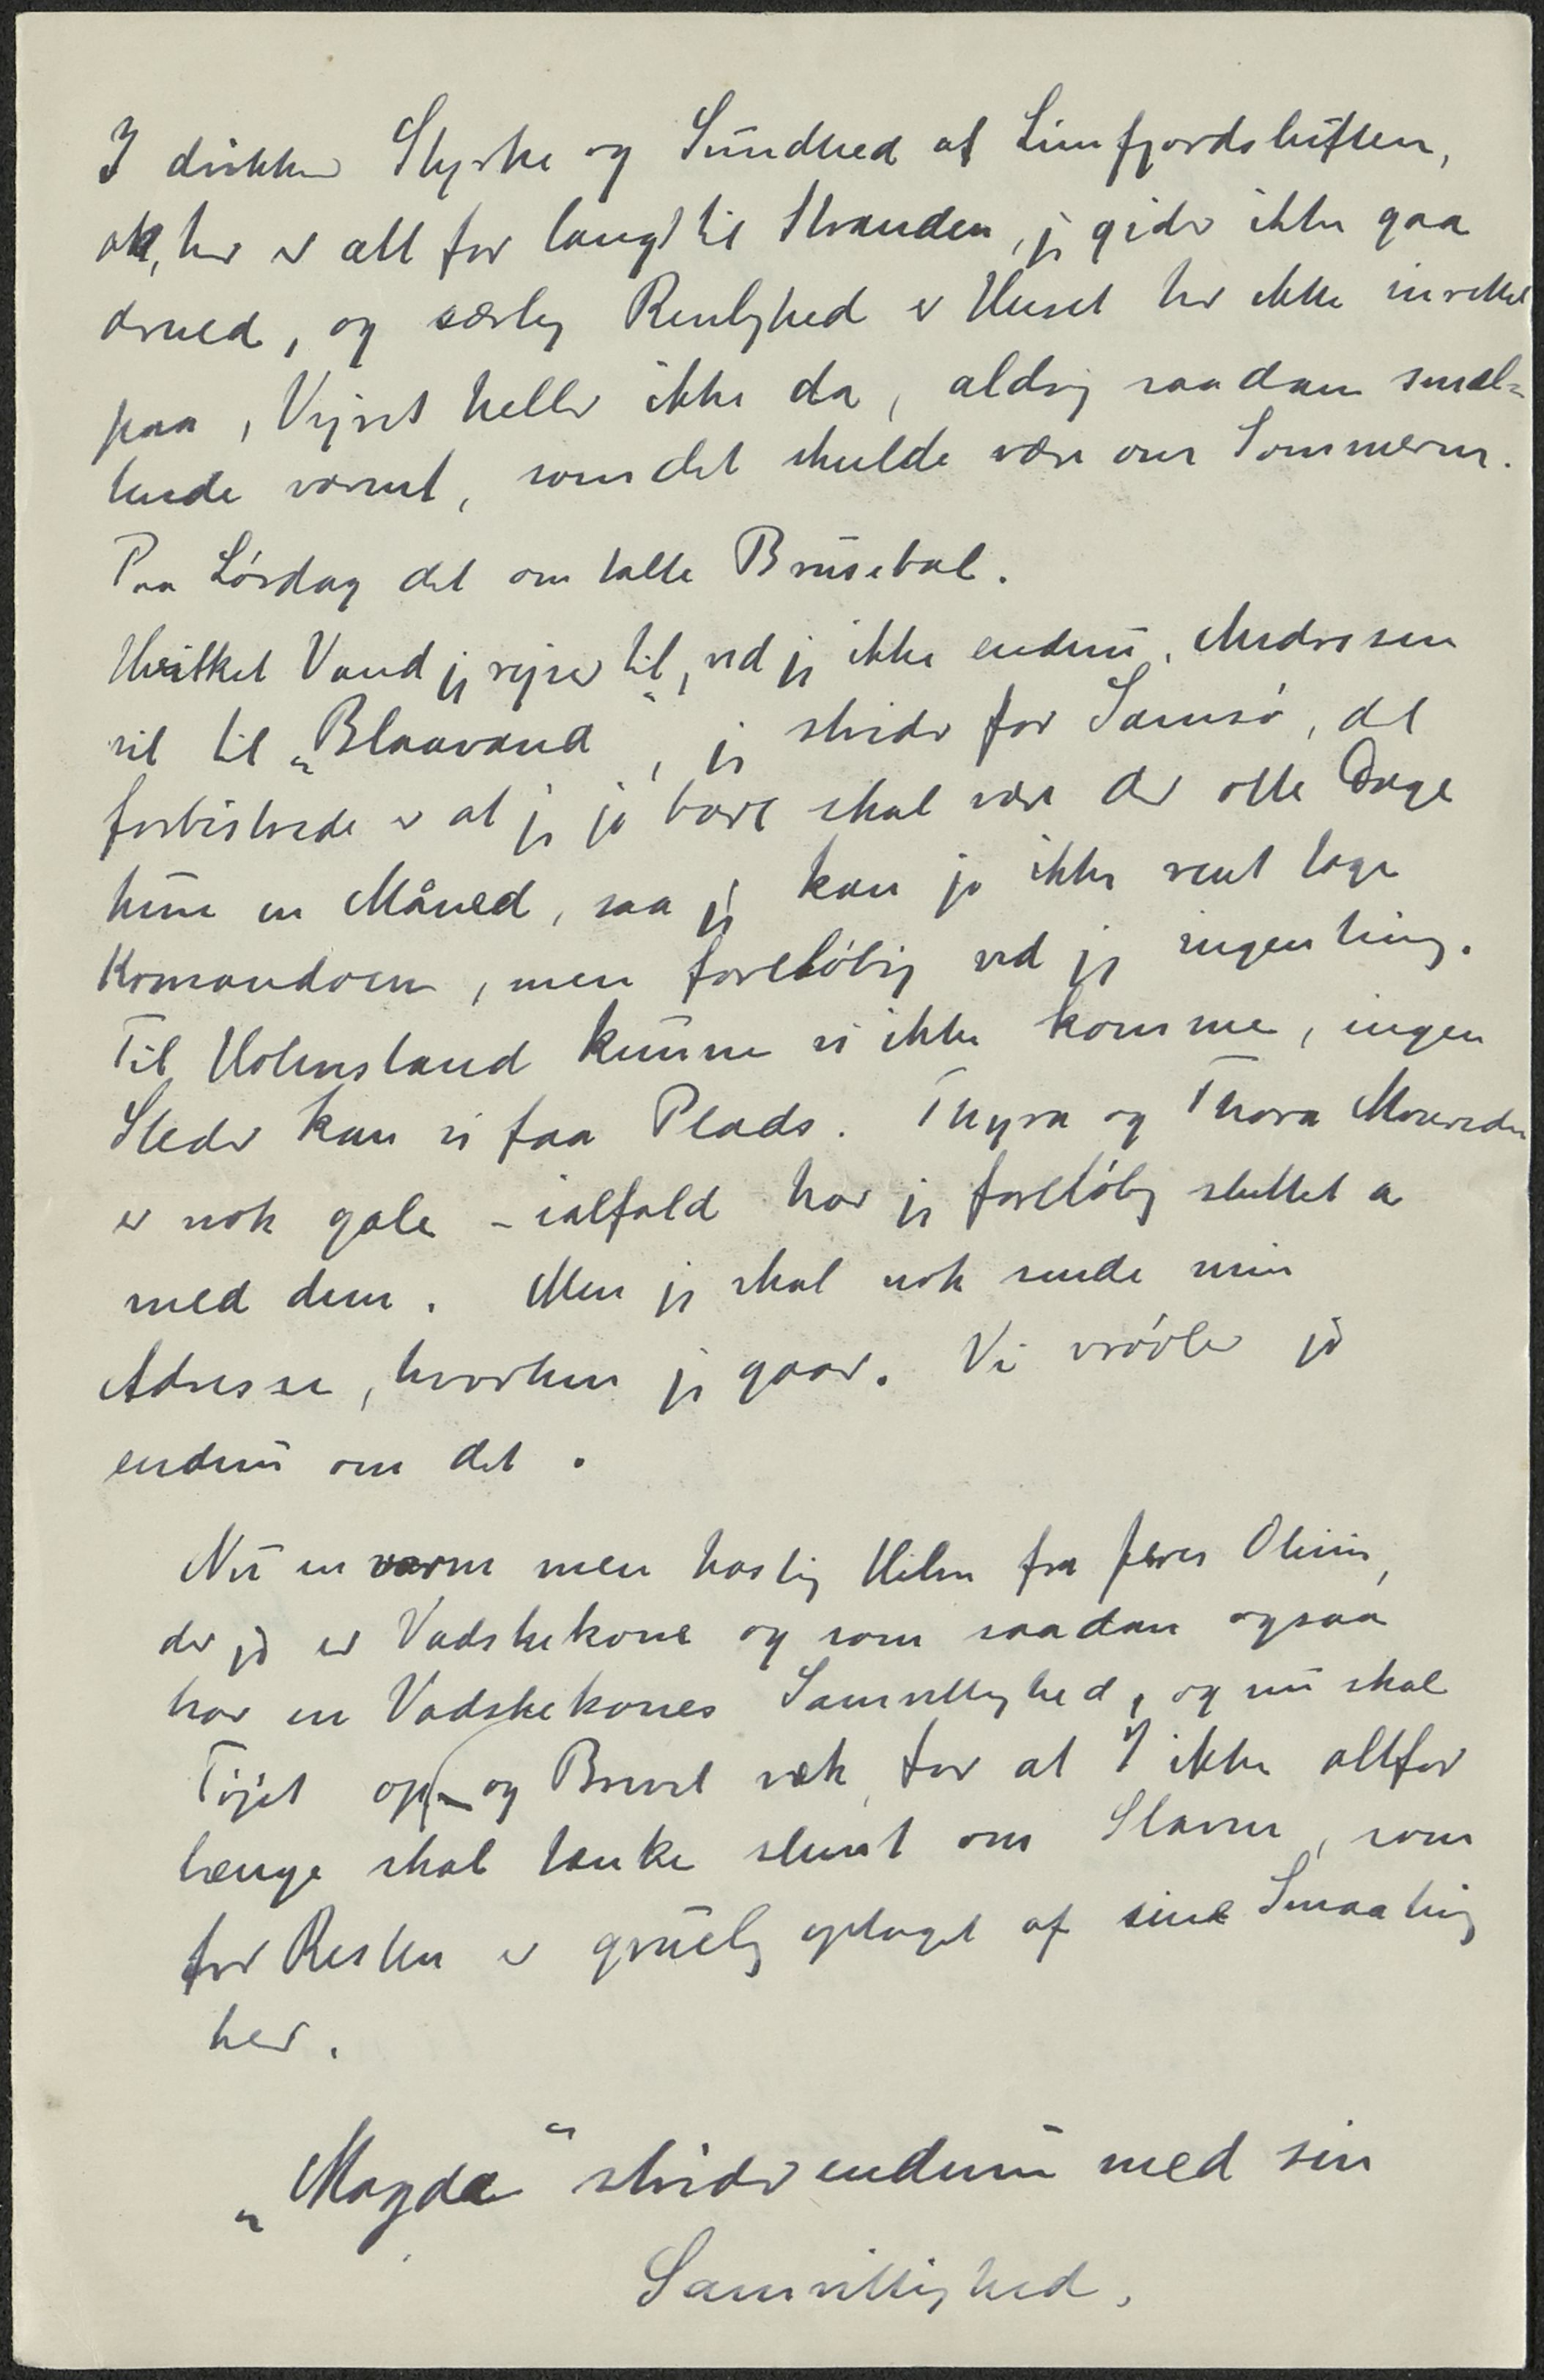 I drikker Styrke og Sundhed af Limfjordsluften,
ak, her er alt for langt til Stranden, jeg gider ikke gaa
derned, og særlig Renlighed er Huset her ikke indrettet
paa, Vejret heller ikke da, aldrig saadan smæl-
tende varmt, som det skulde være om Sommeren.
Paa Lørdag det omtalte Brusebal.
Hvilket Vand jeg rejser til, ved jeg ikke endnu, Andresen
vil til „Blaavand“, jeg strider for Samsø, det
forbistrede er at jeg jo bare skal være der otte Dage
hun en Måned, saa jeg kan jo ikke rent tage
Komandoen, men foreløbig ved jeg ingenting.
Til Holmsland kunne vi ikke komme, ingen
Steder kan vi faa Plads. Thyra og Thora
er nok gale - ialfald har jeg foreløbig sluttet a
med dem. Men jeg skal nok sende min
Adresse, hvorhen jeg gaar. Vi vrøvler jo
endnu om det.
Nu en varm men hastig Hilsen fra jeres Olivia,
der jo er Vadskekone og som saadan ogsaa
har en Vadskekones Samvittighed, og nu skal
Tøjet op og Brevet væk, for at I ikke altfor
længe skal tænke slemt om Slaven, som
for Resten er gruelig optaget af sine Smaating
her.
„Magda“ strider endnu med sin
Samvittighed.